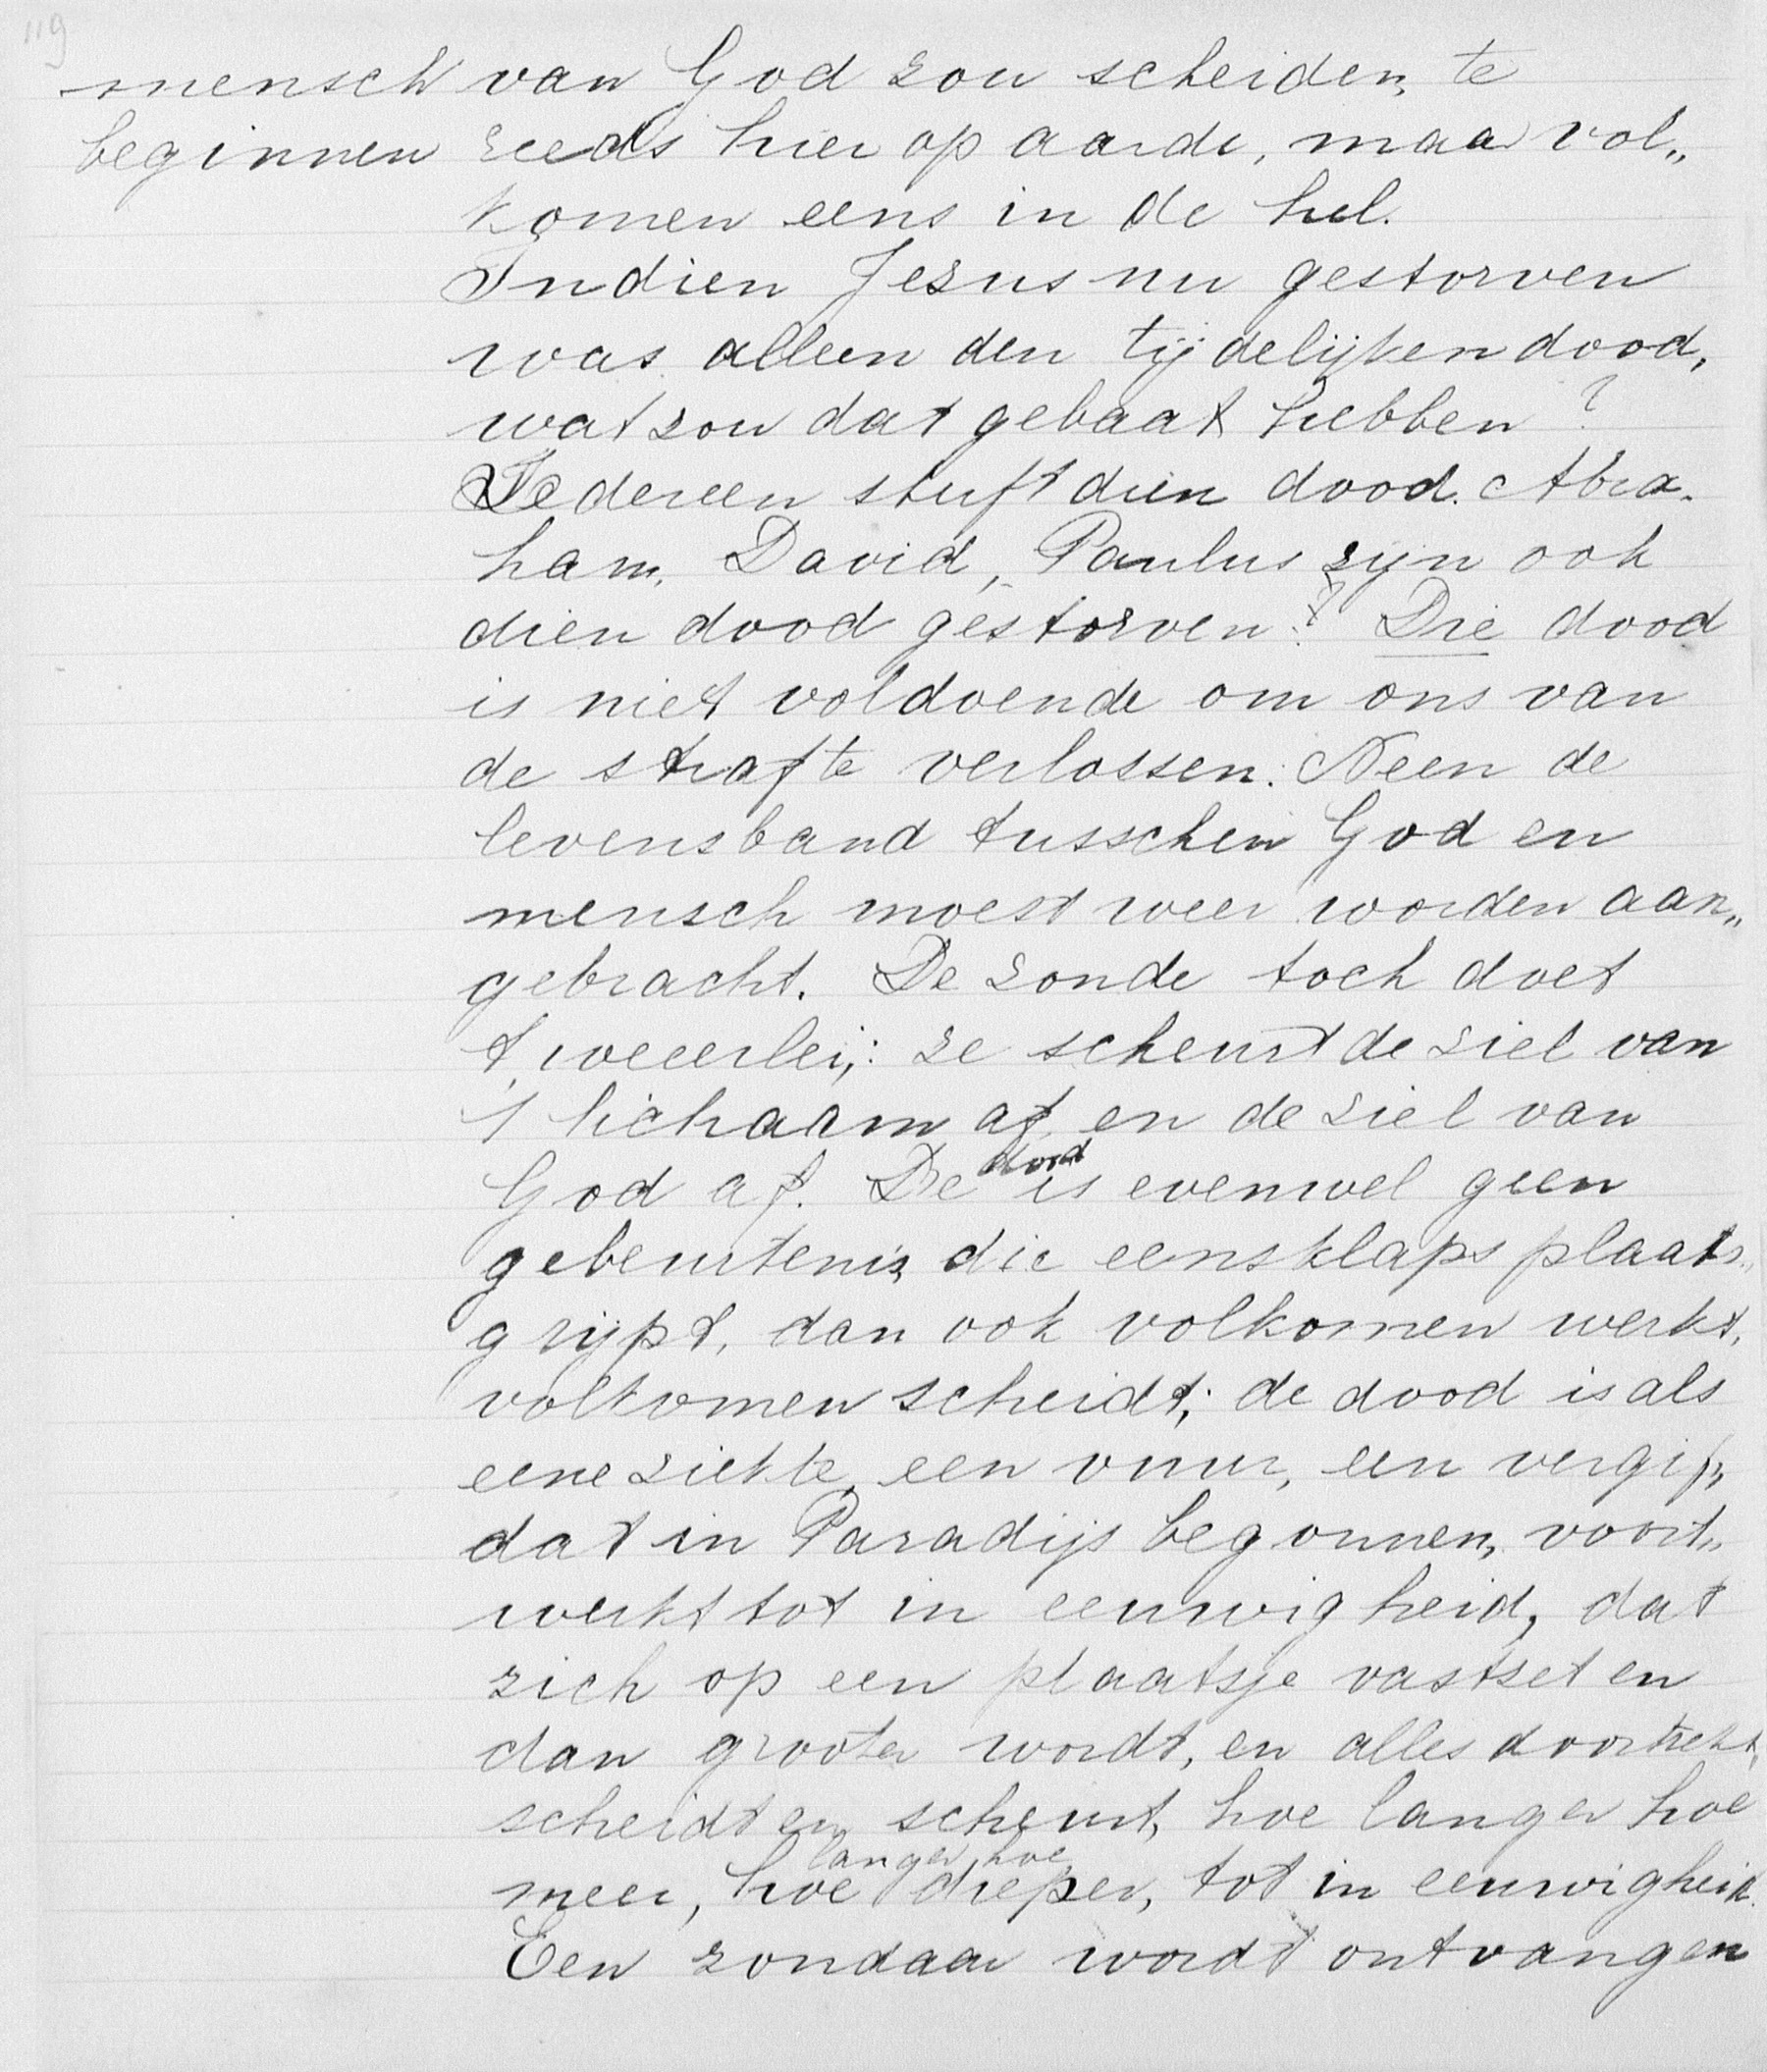 119
mensch van God zou scheiden, te
beginnen reeds hier op aarde, maar vol„
komen eens in de hel.
Indien Jezus nu gestorven
was alleen den tijdelijken dood,
wat zou dat gebaat hebben?
Iedereen sterft dien dood. Abra-
ham, David, Paulus zijn ook
dien dood gestorven? Die dood
is niet voldoende om ons van
de straf te verlossen. Neen de
levensband tusschen God en
mensch moest weer worden aan„
gebracht. De zonde toch doet
tweeerlei,: ze scheurt de ziel van
't lichaam af en de ziel van
God af. De dood is evenwel geen
gebeurtenis, die eensklaps plaats„
grijpt, dan ook volkomen werkt,
volkomen scheidt; de dood is als
eene ziekte, een vuur, een vergif,
dat in Paradijs begonnen, voort„
werkt tot in eeuwigheid, dat
zich op een plaatsje vastzet en
dan grooter wordt, en alles doortrekt,
scheidt en scheurt, hoe langer hoe
meer, hoe langer hoe dieper, tot in eeuwigheid.
Een zondaar wordt ontvangen